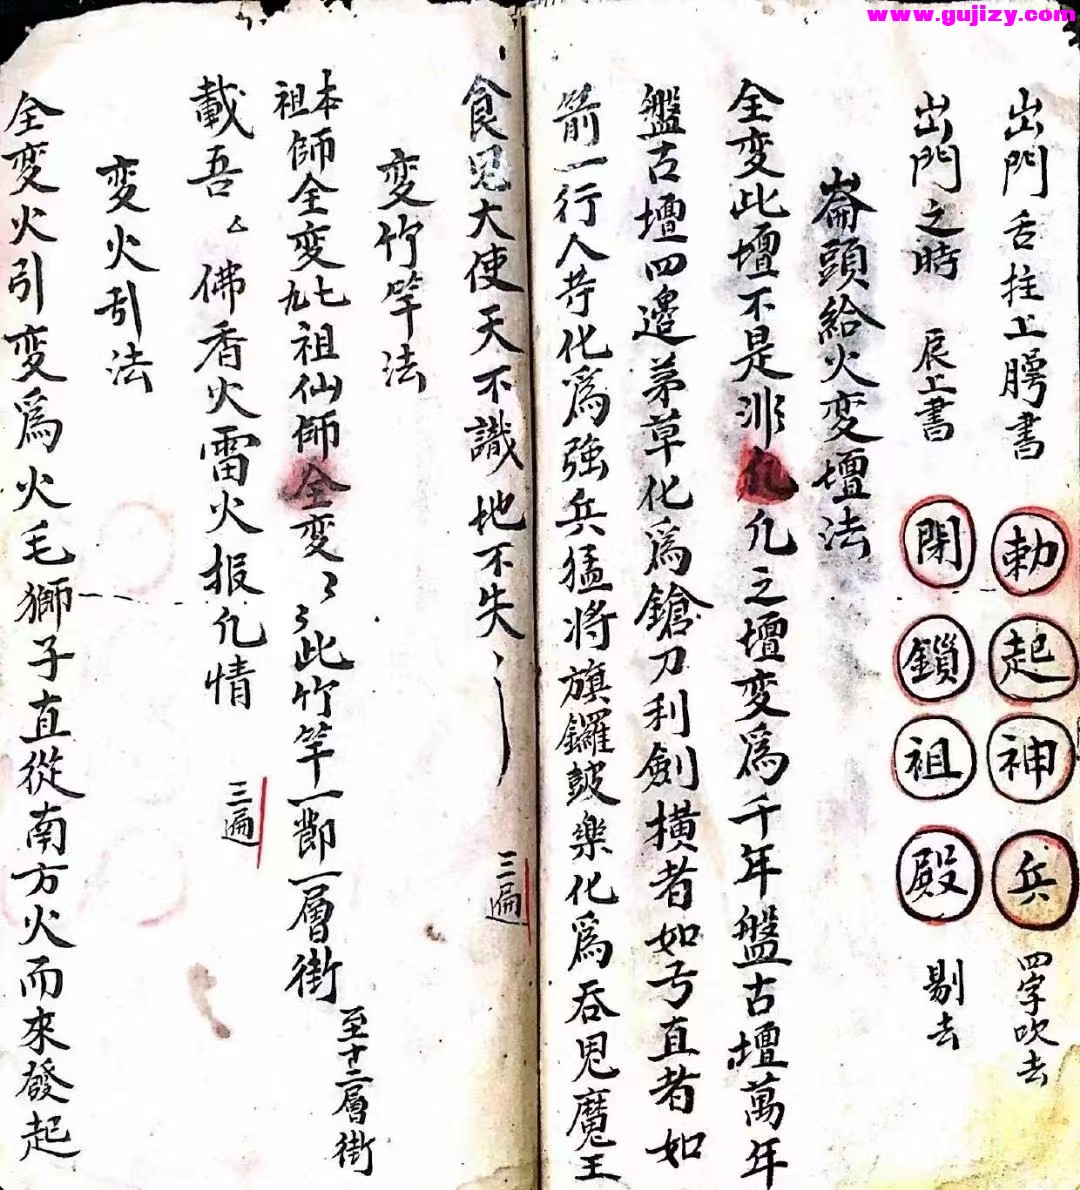 www.gujizy.com
出門舌拄上腭書 勅起神兵 四字吹去
出門之時 辰上書 閉鎖祖殿 剔去
崙頭給火変壇法
全変此壇不是非凢凢之壇変爲千年盤古壇萬年
盤古壇四邉茅草化爲鎗刀利劍横者如弓直者如
箭一行人等化爲強兵猛将旗鑼皷樂化爲吞鬼魔王
食鬼大使天不識地不失 三遍
変竹竿法
本祖師全変七九祖仙師全変〻〻此竹竿一節一層街 至十二層街
載吾△佛香火雷火报凢情 三遍
変火引法
全変火引変爲火毛獅子直從南方火而來發起